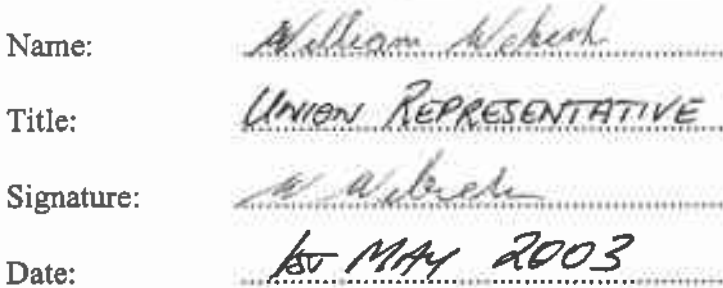 Name: William
Title: UNION REPRESENTATIVE
Signature: W
Date: 1ST MAY 2003